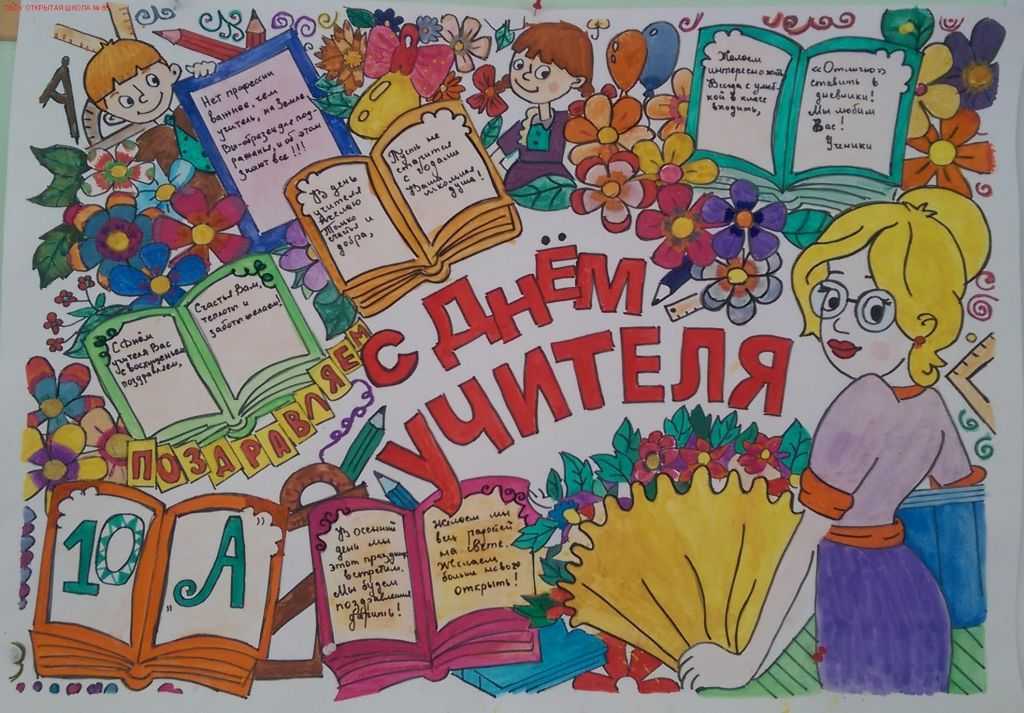 ОТКРЫТАЯ ШКОЛА №
Нет профессии
важнее, чем
учитель, на Земле,
Вы-образец для под-
ражанья, и об этом
знают все!!!
В день
учителя
Желаю
Только
счастья и
добра,
Пусть не
старится
с годами
Ваша
душа!
Желаем
интересно жить
Всегда с улыб-
кой в класс
входить,
«Отлично»
ставить в
дневники!
Мы любим
Вас!
Ученики
С Днём
учителя Вас
с восхищением
поздравляем,
Счастья Вам,
теплоты и
заботы желаем!
ПОЗДРАВЛЯЕМ
С ДНЁМ
УЧИТЕЛЯ
10 „А”
В осенний
день мы
этот праздник
встретим.
Мы будем
поздравления
дарить!
Желаем мы
всех
на свете.
Желаем
больше нового
открыть!